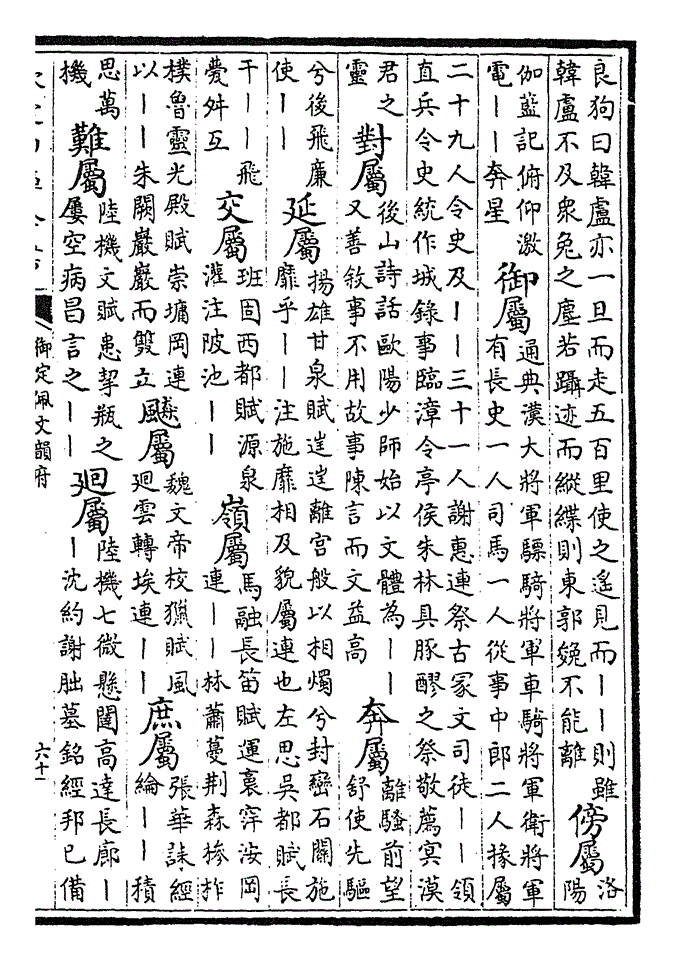 良狗曰韓盧亦一旦而走五百里使之遙見而丨丨則雖
韓盧不及衆兔之塵若躡迹而縱緤則東郭㕙不能離
傍屬
洛
陽
伽藍記俯仰激
電丨丨奔星
御屬
通典漢大將軍驃騎將軍車騎將軍衛將軍
有長史一人司馬一人從事中郎二人掾屬
二十九人令史及丨丨三十一人謝惠連祭古冢文司徒丨丨領
直兵令史統作城錄事臨漳令亭侯朱林具豚醪之祭敬薦冥漠
君之
靈
對屬
後山詩話歐陽少師始以文體為丨丨
又善敘事不用故事陳言而文益高
奔屬
離騷前望
舒使先驅
兮後飛廉
使丨丨
延屬
揚雄甘泉賦迋迋離宮般以相燭兮封巒石關施
靡乎丨丨注施靡相及貌屬連也左思吳都賦長
干丨丨飛
甍舛互
交屬
班固西都賦源泉
灌注陂池丨丨
嶺屬
馬融長笛賦運裛穿洝岡
連丨丨林蕭蔓荆森槮柞
樸魯靈光殿賦崇墉岡連
以丨丨朱闕巖巖而雙立
飈屬
魏文帝校獵賦風
廻雲轉埃連丨丨
庶屬
張華誄經
綸丨丨積
思萬
機
難屬
陸機文賦患挈瓶之
屢空病昌言之丨丨
廻屬
陸機七微懸闥高達長廊丨
丨沈約謝朏墓銘經邦已備
御定佩文韻府
六十一